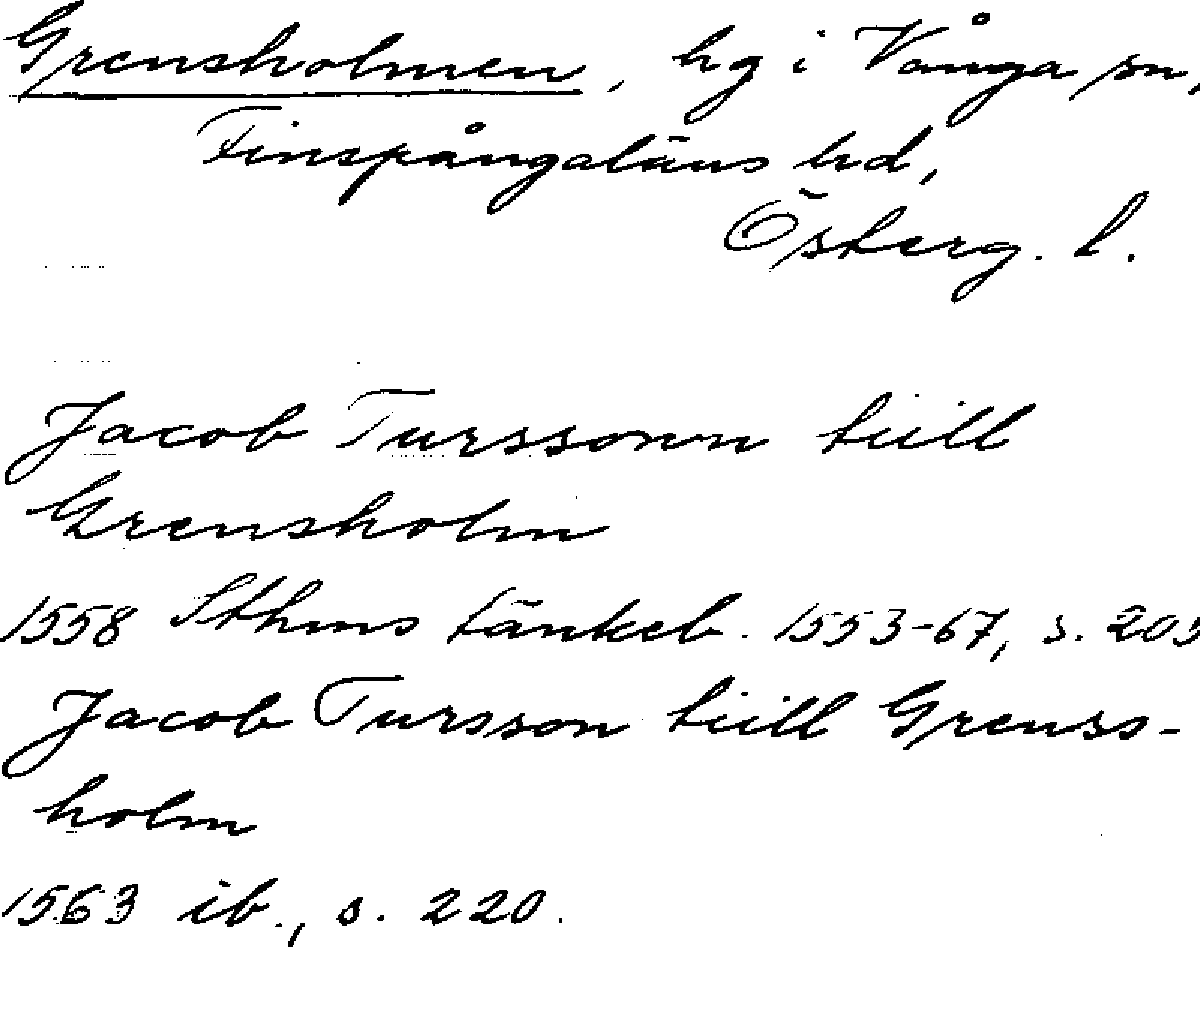 Grensholmen, hg i Vånga sn,
Finspångaläns hd,
Österg. l.
Jacob Turssonn tiill
Grensholm
1558 Sthms tänkeb. 1553-67, s. 203
Jacob Tursson tiill Grenss-
holm
1563 ib., s. 220.